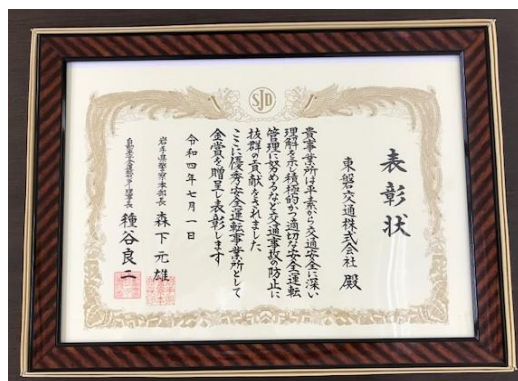 SJD
表彰状
東磐交通株式会社 殿
貴事業所は平素から交通安全に深い
理解を示し積極的かつ適切な安全運転
管理に努めるなど交通事故の防止に
抜群の貢献をされました
ここに優秀安全運転事業所として
金賞を贈呈し表彰します
令和四年七月一日
岩手県警察本部長 森下元雄
自動車安全運転センター理事長 種谷良二